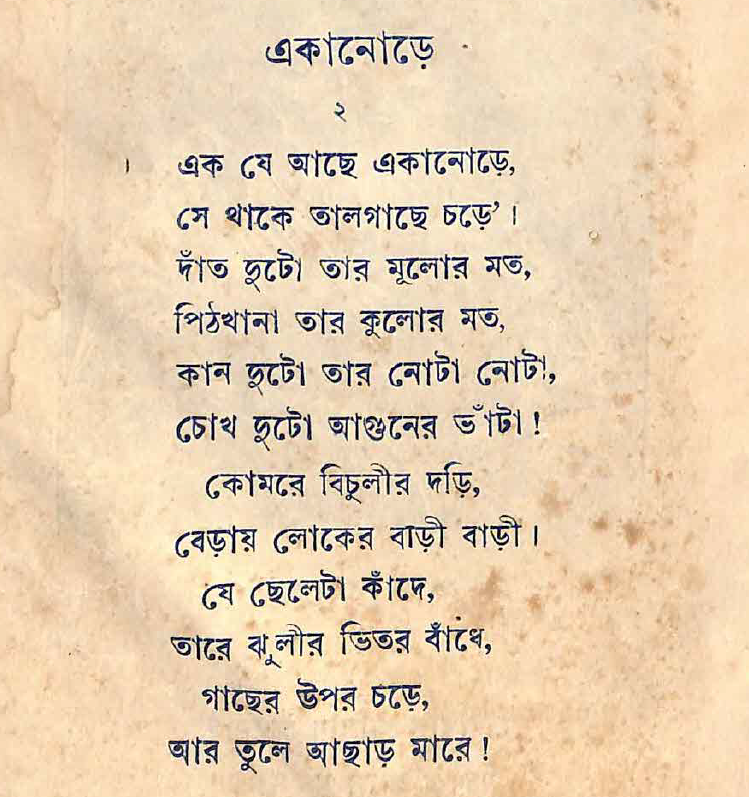 একানোড়ে
২
এক যে আছে একানোড়ে,
সে থাকে তালগাছে চড়ে’।
দাঁত দুটো তার মূলোর মত,
পিঠখানা তার কুলোর মত,
কান দুটো তার নোটা নোটা,
চোখ দুটো আগুনের ভাঁটা!
কোমরে বিচুলীর দড়ি,
বেড়ায় লোকের বাড়ী বাড়ী।
যে ছেলেটা কাঁদে,
তারে ঝুলীর ভিতর বাঁধে,
গাছের উপর চড়ে,
আর তুলে আছাড় মারে!